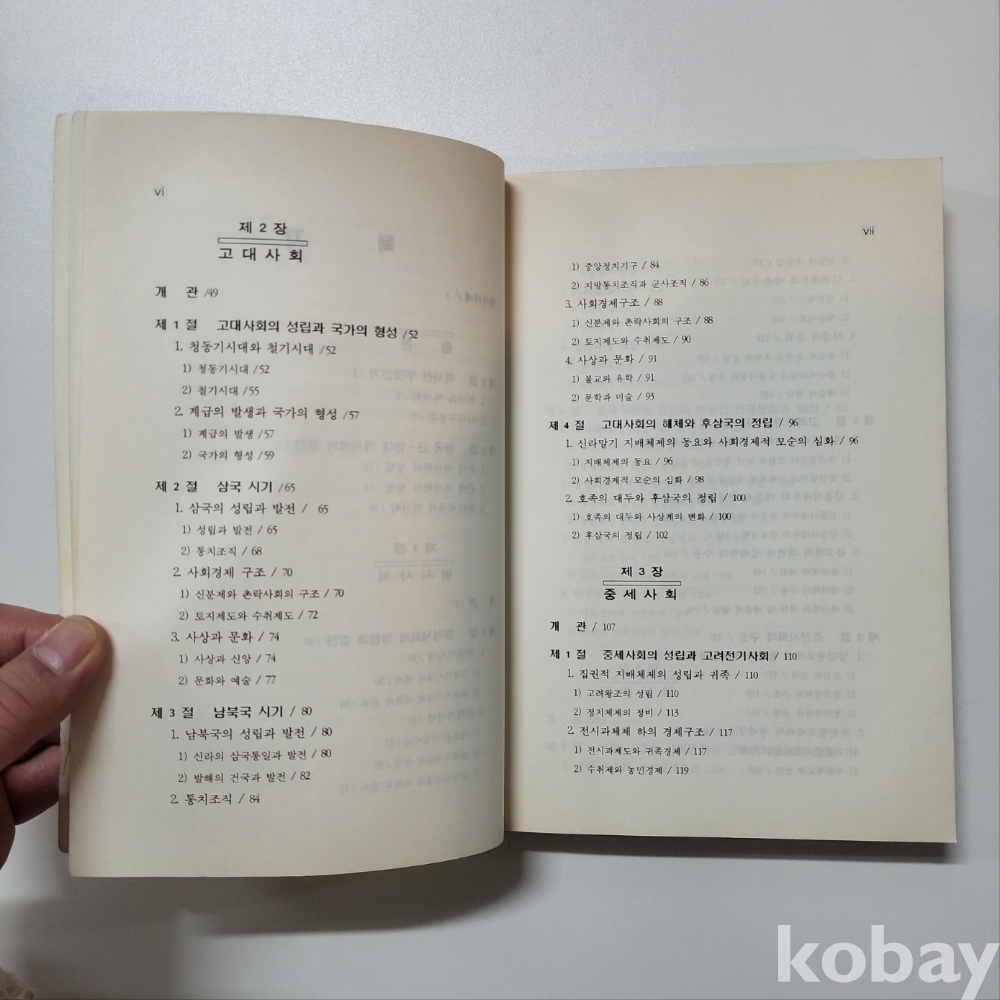 vi
제 2 장
고 대 사 회
개 관 /49
제 1 절 고대사회의 성립과 국가의 형성 /52
1. 청동기시대와 철기시대 /52
1) 청동기시대 /52
2) 철기시대 /55
2. 계급의 발생과 국가의 형성 /57
1) 계급의 발생 /57
2) 국가의 형성 /59
제 2 절 삼국 시기 /65
1. 삼국의 성립과 발전 / 65
1) 성립과 발전 / 65
2) 통치조직 / 68
2. 사회경제 구조 / 70
1) 신분제와 촌락사회의 구조 / 70
2) 토지제도와 수취제도 / 72
3. 사상과 문화 / 74
1) 사상과 신앙 / 74
2) 문화와 예술 / 77
제 3 절 남북국 시기 / 80
1. 남북국의 성립과 발전 / 80
1) 신라의 삼국통일과 발전 / 80
2) 발해의 건국과 발전 / 82
2. 통치조직 / 84
vii
1) 중앙정치기구 / 84
2) 지방통치조직과 군사조직 / 86
3. 사회경제구조 / 88
1) 신분제와 촌락사회의 구조 / 88
2) 토지제도와 수취제도 / 90
4. 사상과 문화 / 91
1) 불교와 유학 / 91
2) 문학과 미술 / 93
제 4 절 고대사회의 해체와 후삼국의 정립 / 96
1. 신라말기 지배체제의 동요와 사회경제적 모순의 심화 / 96
1) 지배체제의 동요 / 96
2) 사회경제적 모순의 심화 / 98
2. 호족의 대두와 후삼국의 정립 / 100
1) 호족의 대두와 사상계의 변화 / 100
2) 후삼국의 정립 / 102
제 3 장
중 세 사 회
개 관 / 107
제 1 절 중세사회의 성립과 고려전기사회 / 110
1. 집권적 지배체제의 성립과 귀족 / 110
1) 고려왕조의 성립 / 110
2) 정치체제의 정비 / 113
2. 전시과체제 하의 경제구조 / 117
1) 전시과제도와 귀족경제 / 117
2) 수취제와 농민경제 / 119
kobay